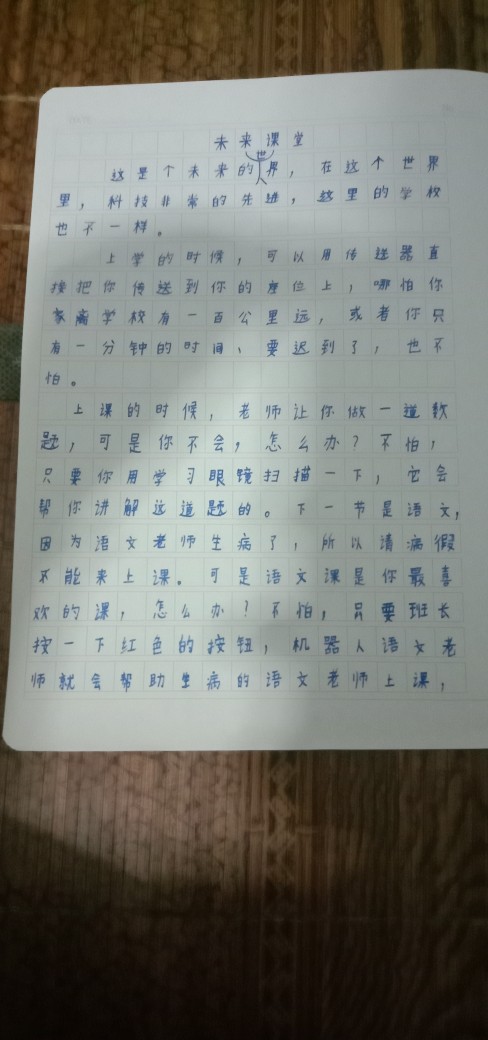 未来课堂
这是个未来的世界，在这个世界
里，科技非常的先进，这里的学校
也不一样。
上学的时候，可以用传送器直
接把你传送到你的座位上，哪怕你
家离学校有一百公里远，或者你只
有一分钟的时间、要迟到了，也不
怕。
上课的时候，老师让你做一道数
题，可是你不会，怎么办？不怕，
只要你用学习眼镜扫描一下，它会
帮你讲解这道题的。下一节是语文，
因为语文老师生病了，所以请病假
不能来上课。可是语文课是你最喜
欢的课，怎么办？不怕，只要班长
按一下红色的按钮，机器人语文老
师就会帮助生病的语文老师上课，